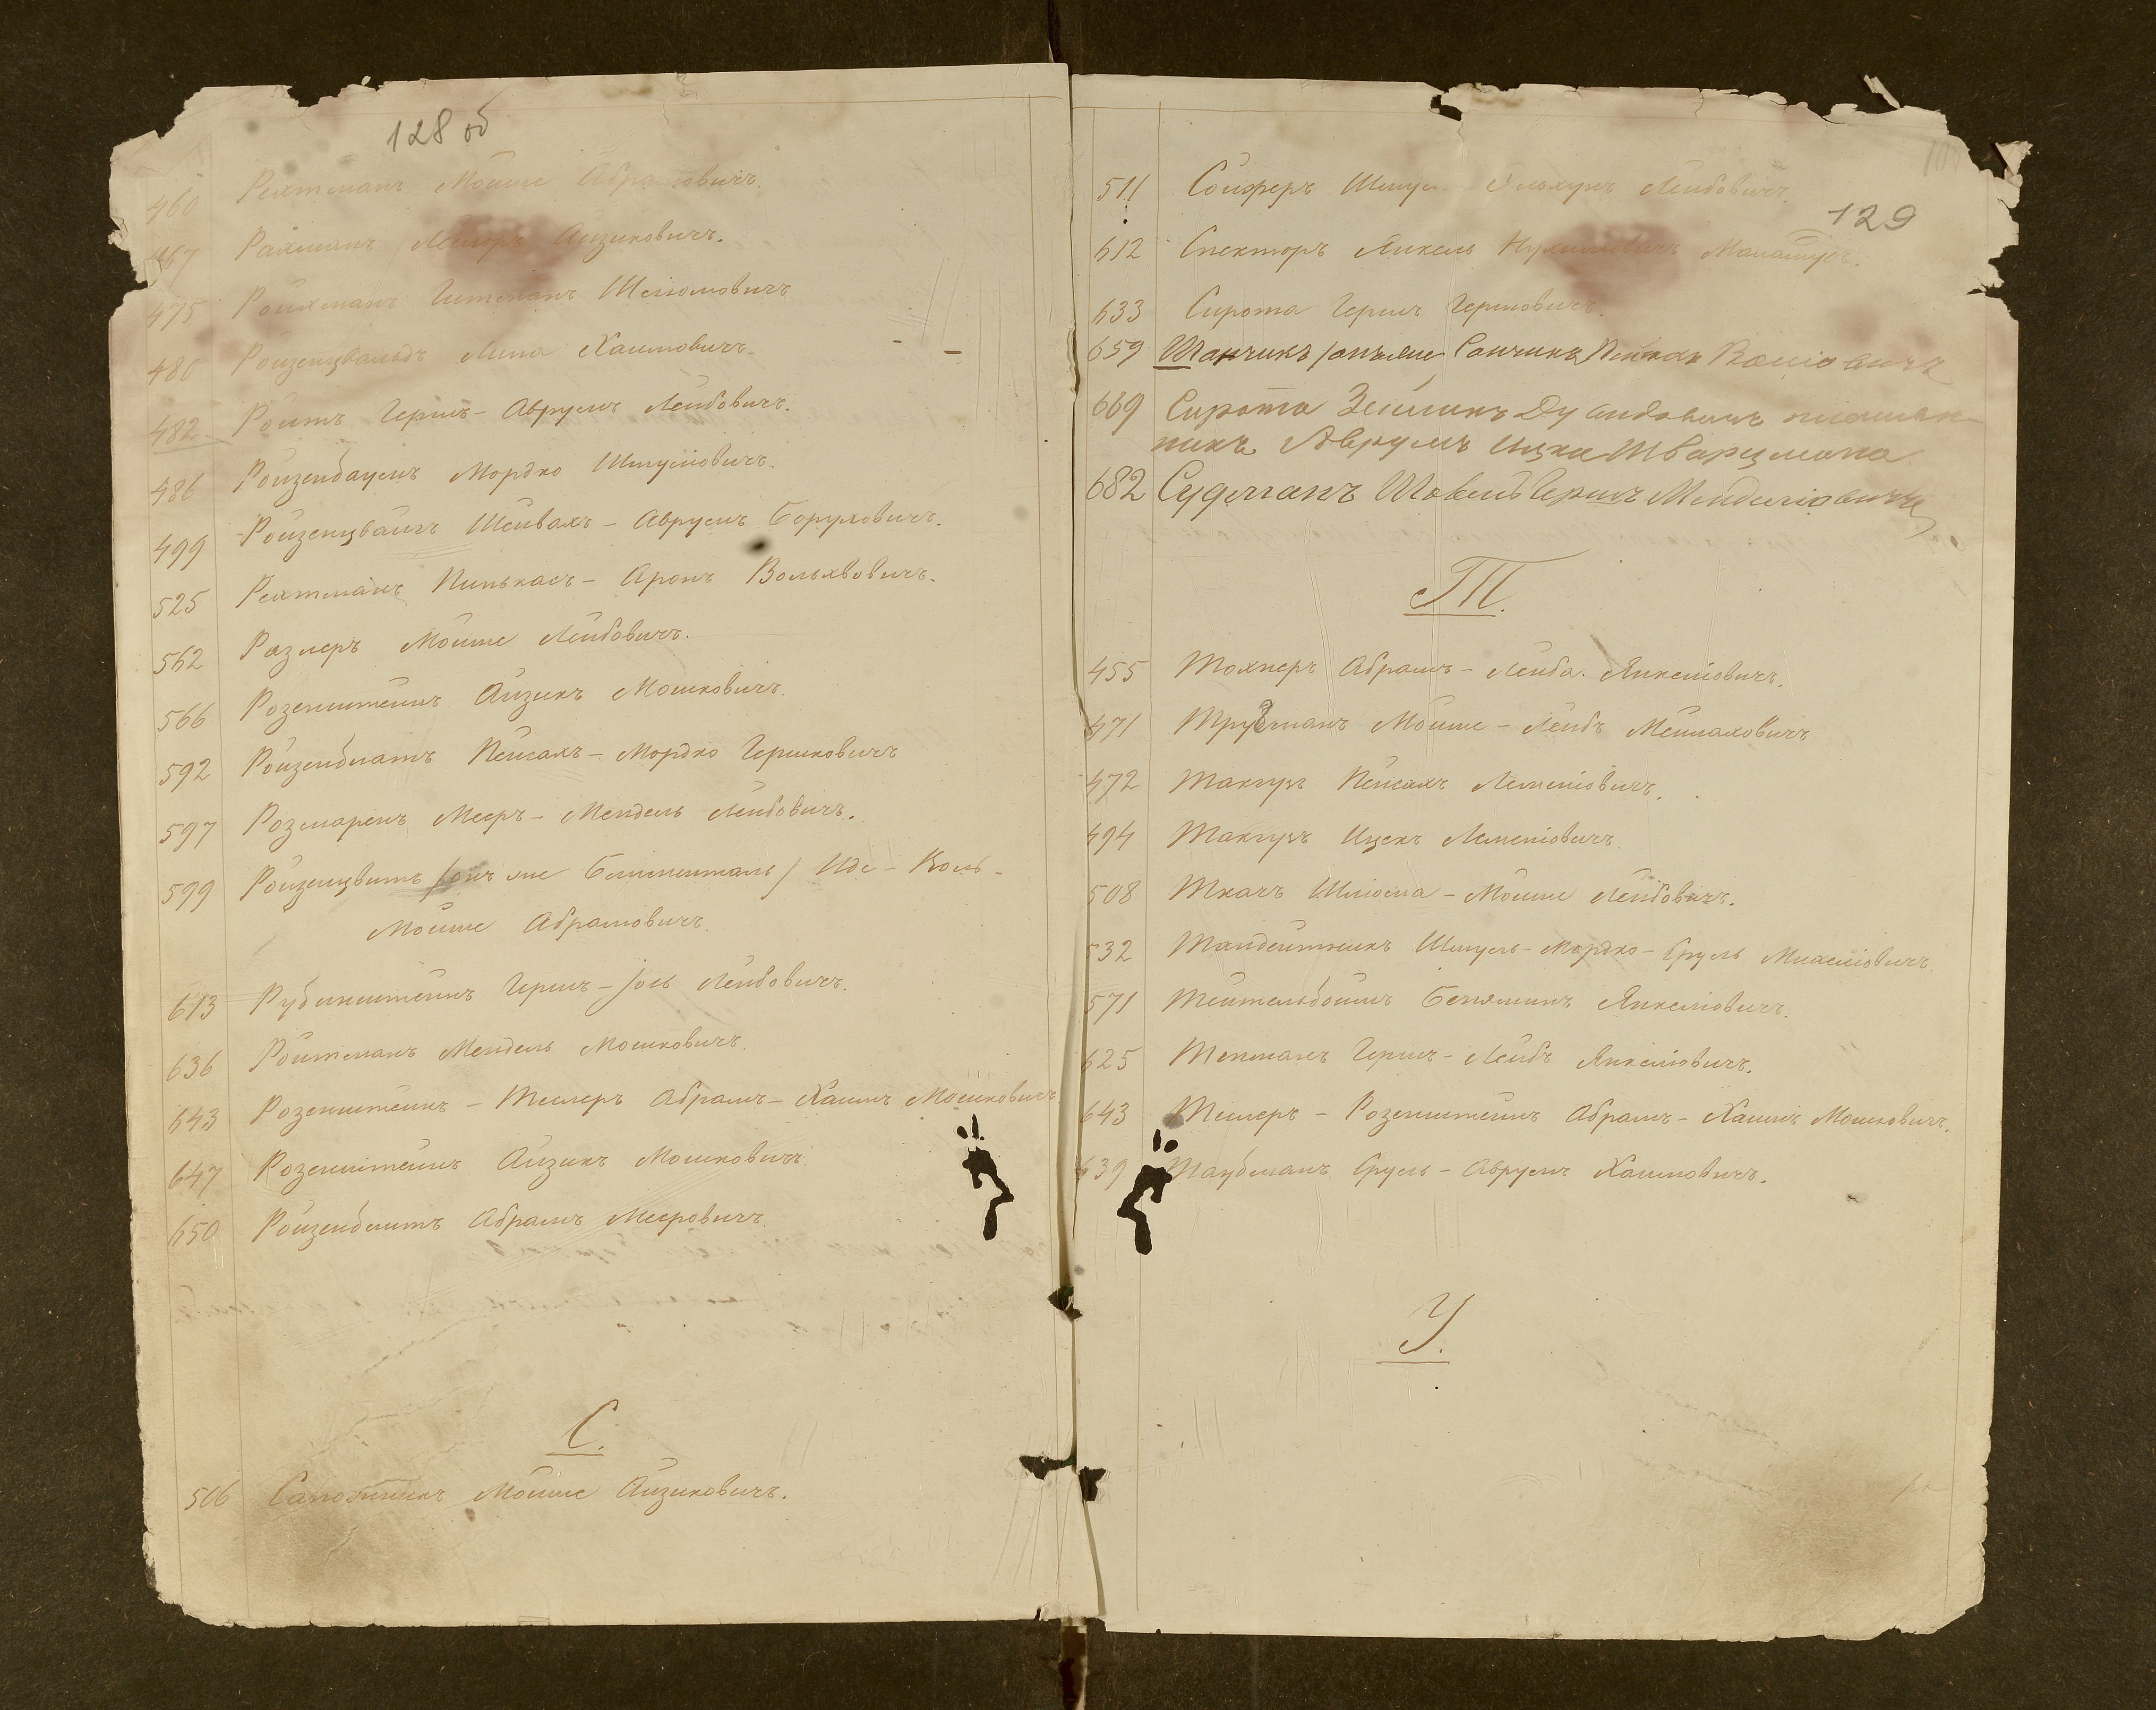 128 об
460 Рехтманъ Мойше Абрамовичъ.
467 Рахманъ Айзиковичъ.
475 Ройхманъ Гитманъ Шеломовичъ
480 Ройзенцвальдъ Липа Хаимовичъ.
482 Ройтъ Гершъ-Аврумъ Лейбовичъ.
486 Ройзенбаумъ Мордко Шмулёвичъ.
499 Ройзенцвайгъ Шейвахъ-Аврумъ Боруховичъ.
525 Рехтманъ Пинькасъ-Аронъ Вольквовичъ.
562 Разлеръ Мойше Лейбовичъ.
566 Розенштейнъ Айзикъ Мошковичъ.
592 Ройзенблатъ Пейсахъ-Мордко Гершковичъ
597 Розмаренъ Мееръ-Мендель Лейбовичъ.
599 Ройзенцвитъ /онъ же / Иде-Коль-
Мойше Абрамовичъ.
613 Рубинштейнъ Гершъ-Іоль Лейбовичъ.
636 Ройтманъ Мендель Мошковичъ.
643 Розенштейнъ-Теплеръ Абрамъ-Хаимъ Мошковичъ
647 Розенштейнъ Айзикъ Мошковичъ
650 Ройзенблитъ Абрамъ Мееровичъ
С.
506 Сапожникъ Мойше Айзиковичъ.
129
511 Сойферъ Лейбовичъ.
612 Спекторъ Янкель
633 Сирота Гершъ Гершковичъ.
659 Шанчикъ /онъ же Санчикъ
669 Сирота Зейликъ племян-
никъ Аврумъ Ицка Шварцмана
682 Гершъ
Т.
455 Тохнеръ Абрамъ-Лейба Янкелёвичъ.
471 Трубманъ Мойше-Лейбъ Меилаховичъ
472 Такгузъ Пейсахъ
494 Такгузъ Ицекъ
508 Ткачъ Шліома-Мойше Лейбовичъ.
532 Тандейтникъ Шмуль-Мордко-Сруль Михелёвичъ
571 Тейтельбоймъ Беняминъ Янкелёвичъ.
625 Тепманъ Гершъ-Лейбъ Янкелёвичъ.
643 Теплеръ-Розенштейнъ Абрамъ-Хаимъ Мошковичъ.
639 Таубманъ Сруль-Аврумъ Хаимовичъ.
У.